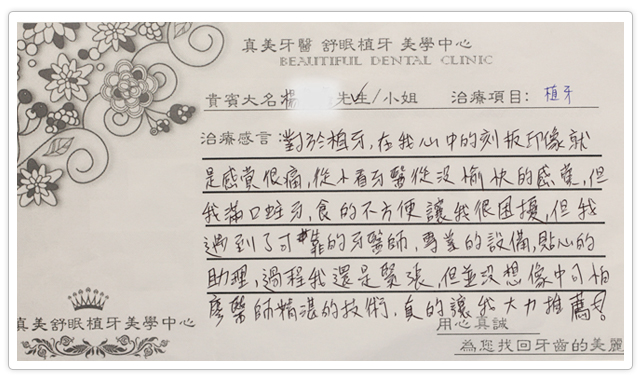 真美牙醫 舒眠植牙 美學中心
BEAUTIFUL DENTAL CLINIC
貴賓大名 楊 先生/小姐 治療項目: 植牙
治療感言 對於植牙,在我心中的刻板印象就
是感覺很痛,從小看牙醫從沒愉快的感覺,但
我滿口蛀牙,食的不方便讓我很困擾,但我
遇到了可靠的牙醫師,專業的設備,貼心的
助理,過程我還是緊張,但並沒想像中可怕
廖醫師精湛的技術,真的讓我大力推薦!
真美舒眠植牙美學中心
用心真誠
為您找回牙齒的美麗